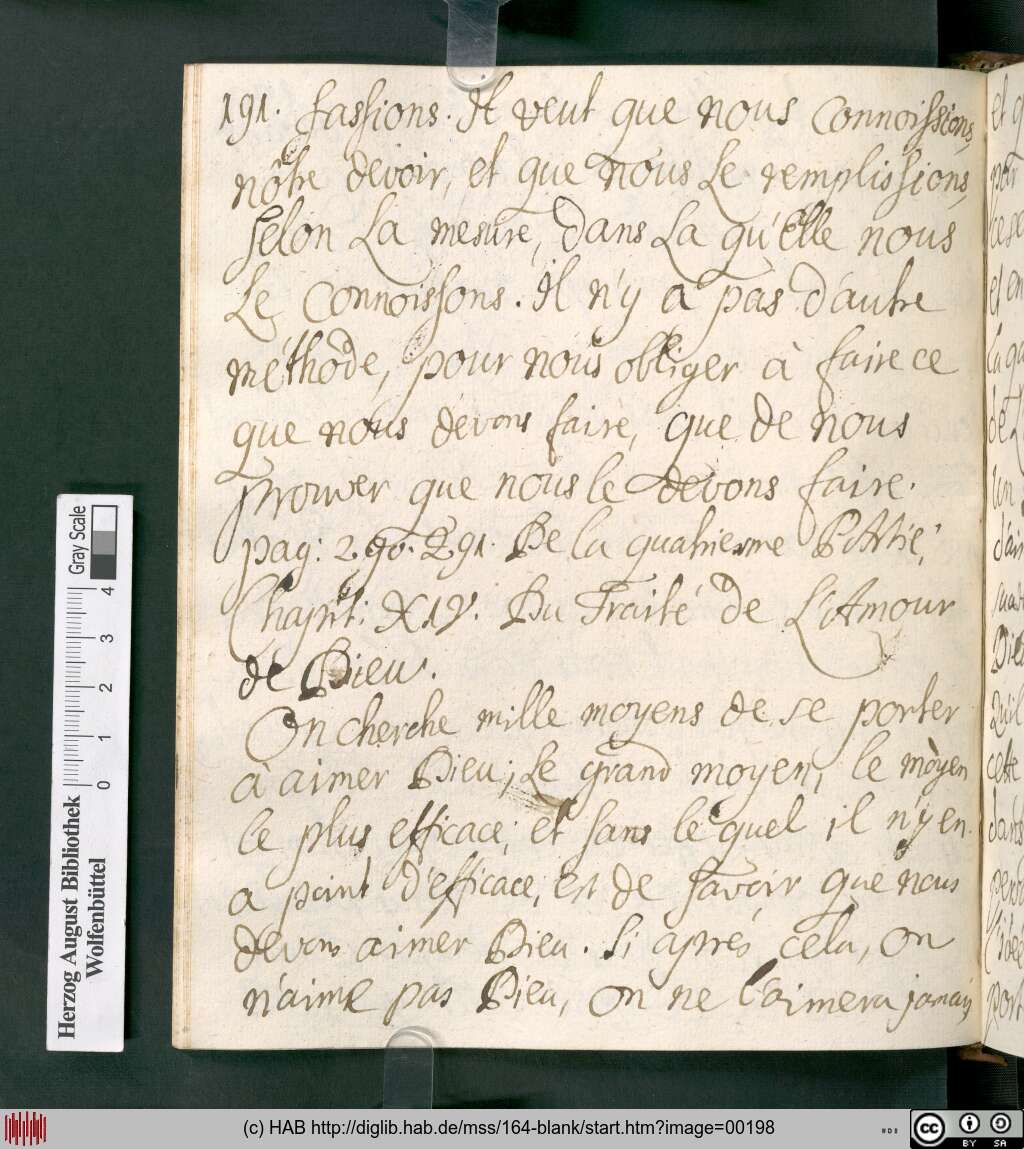 191. fassions. Il veut que nous connoissions,
nôtre devoir, et que nous Le remplissions,
selon La mesure, dans La qu'Elle nous
Le connoissons. Il n'y a pas d'autre
méthode, pour nous obliger à faire ce
que nous devons faire, que de nous
prouver que nous le devons faire.
pag: 290. 291. De la quatrieme PArtie,
Chapit: XIV. Du Traité de L'Amour
de Dieu.
On cherche mille moyens de se porter
à aimer Dieu; Le grand moyen, le moyen
le plus efficace; et sans le quel il n'y en
a point d'efficace, est de savoir que nous
devons aimer Dieu. Si aprés cela, on
n'aime pas Dieu, on ne l'aimera jamais
Herzog August Bibliothek
Wolfenbüttel
Gray Scale
0 1 2 3 4
(c) HAB http://diglib.hab.de/mss/164-blank/start.htm?image=00198
cc BY SA